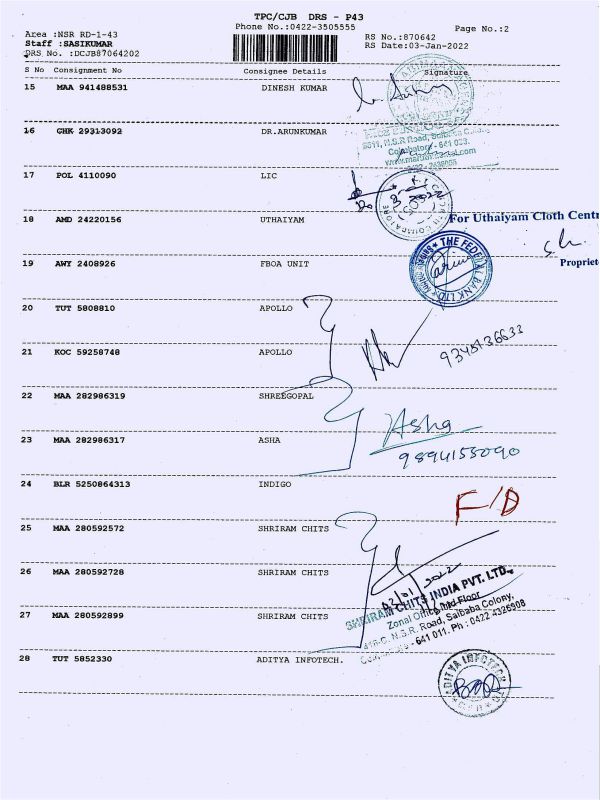 TPC/CJB DRS - P43
Phone No.:0422-3505555
Page No.:2
Area :NSR RD-1-43
RS No.:870642
Staff :SASIKUMAR
RS Date:03-Jan-2022
DRS No. :DCJB87064202
S No Consignment No Consignee Details Signature
15 MAA 941488531 DINESH KUMAR
16 GHK 29313092 DR.ARUNKUMAR
17 POL 4110090 LIC
18 AMD 24220156 UTHAIYAM
For Uthaiyam Cloth Centr
19 AWY 2408926 FBOA UNIT
Propriet
THE FEDERAL BANK LTD
20 TUT 5808810 APOLLO
21 KOC 59258748 APOLLO
22 MAA 282986319 SHREEGOPAL
Asha
23 MAA 282986317 ASHA
9894155090
24 BLR 5250864313 INDIGO
F/D
25 MAA 280592572 SHRIRAM CHITS
26 MAA 280592728 SHRIRAM CHITS
SHRIRAM CHITS INDIA PVT. LTD.,
Zonal Office, Floor
N.S.R. Road, Saibaba Colony,
641 011. Ph : 0422 4326908
27 MAA 280592899 SHRIRAM CHITS
28 TUT 5852330 ADITYA INFOTECH.
ADITYA INFOTECH